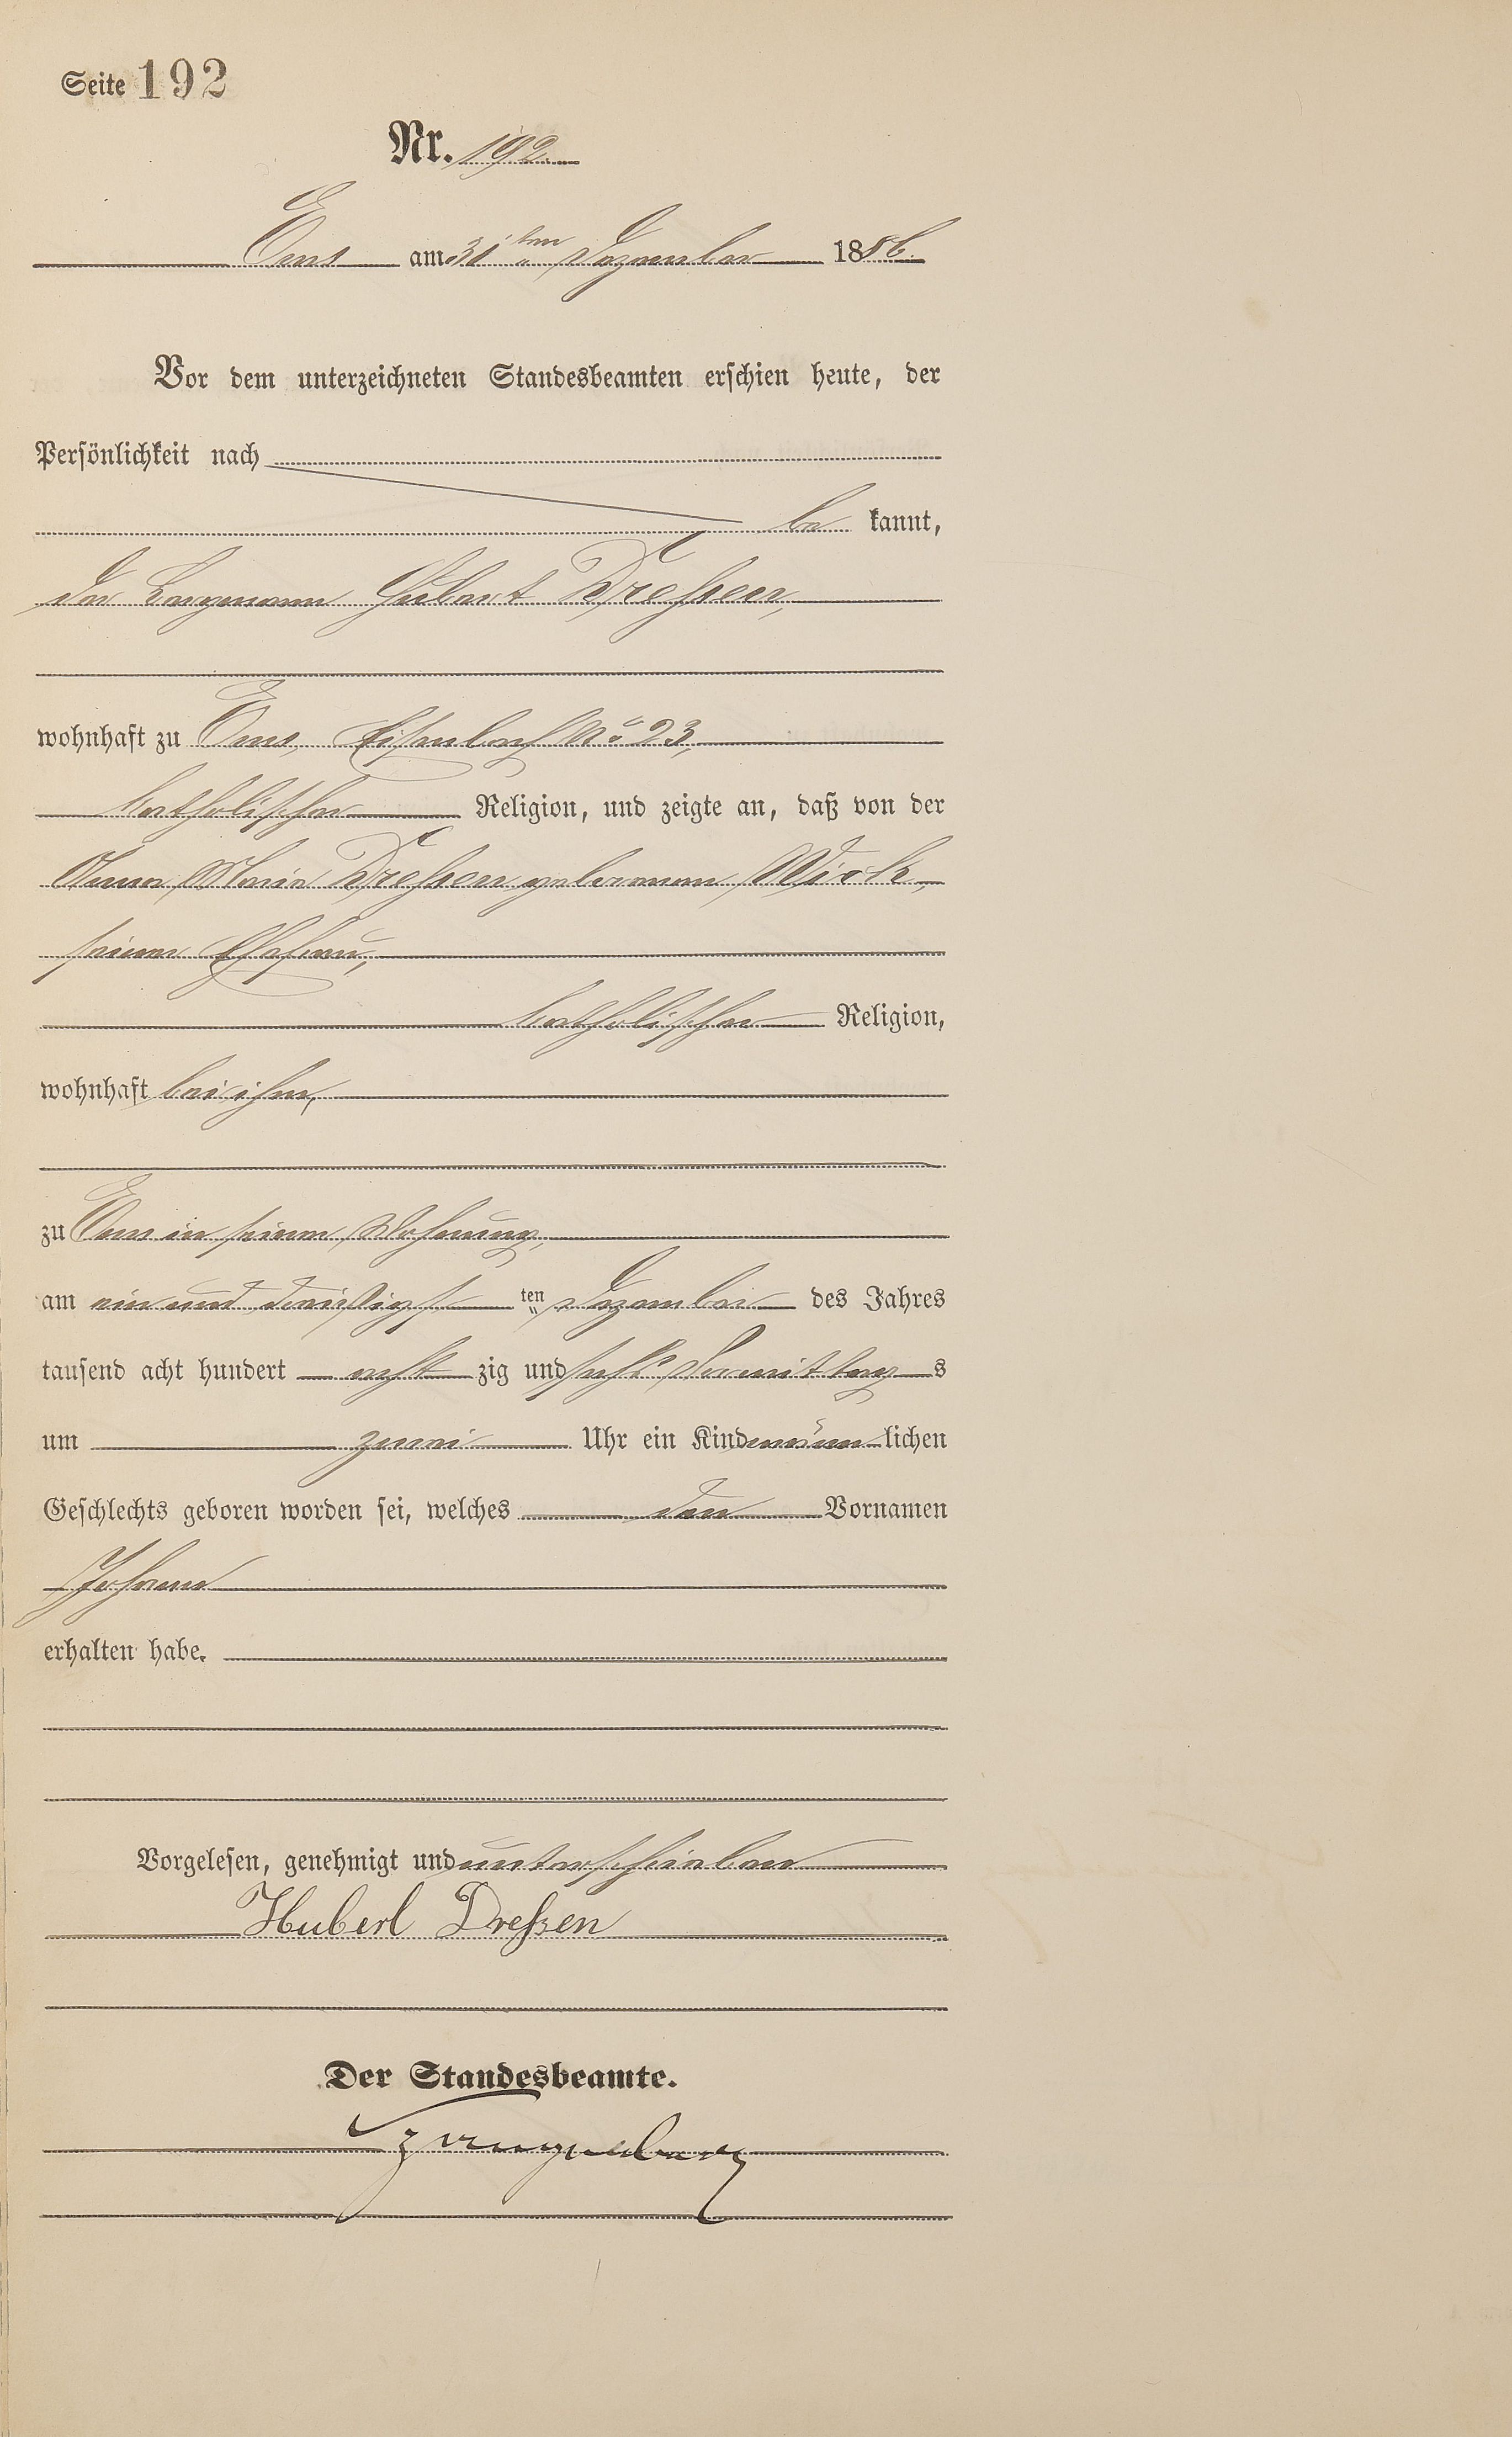 Seite 192
Nr. 192.
Ems am 31ten Dezember 1886.
Vor dem unterzeichneten Standesbeamten erschien heute, der
Persönlichkeit nach
be kannt,
der Bergmann Hubert Dreßen,
wohnhaft zu Ems, Eisenbach No 23,
katholischer Religion, und zeigte an, daß von der
Anna Maria Dreßen geborenen Wirth,
seiner Ehefrau,
katholischer Religion,
wohnhaft bei ihm,
zu Ems in seiner Wohnung,
am ein und dreißigsten Dezember des Jahres
tausend acht hundert acht zig und sechs Vormittags
um zwei Uhr ein Kind männlichen
Geschlechts geboren worden sei, welches den Vornamen
Johann
erhalten habe.
Vorgelesen, genehmigt und unterschrieben
Hubert Dreßen
Der Standesbeamte.